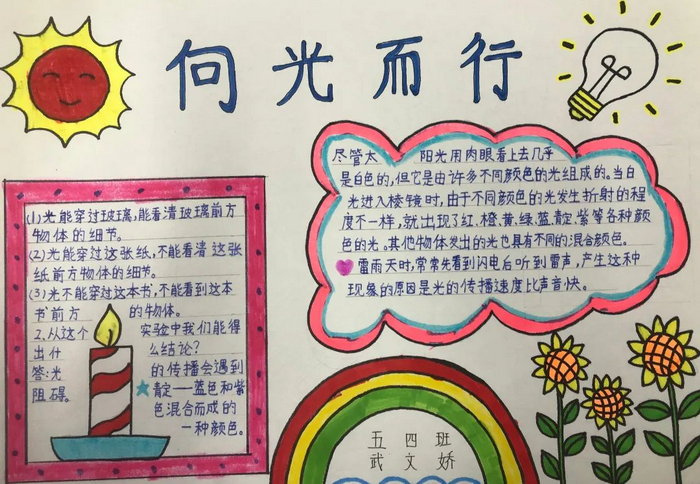 向光而行
(1)光能穿过玻璃,能看清玻璃前方
物体的细节。
(2)光能穿过这张纸,不能看清这张
纸前方物体的细节。
(3)光不能穿过这本书,不能看到这本
书前方的物体。
2、从这个实验中我们能得
出什么结论?
答:光的传播会遇到
阻碍。
★靛—蓝色和紫
色混合而成的
一种颜色。
尽管太阳光用肉眼看上去几乎
是白色的,但它是由许多不同颜色的光组成的。当白
光进入棱镜时,由于不同颜色的光发生折射的程
度不一样,就出现了红、橙、黄、绿、蓝、靛、紫等各种颜
色的光。其他物体发出的光也具有不同的混合颜色。
雷雨天时,常常先看到闪电后听到雷声,产生这种
现象的原因是光的传播速度比声音快。
五四班
武文娇